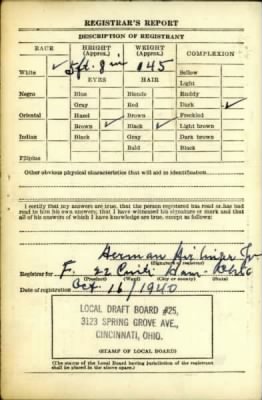 REGISTRAR'S REPORT
DESCRIPTION OF REGISTRANT
RACE HEIGHT (Approx.) WEIGHT (Approx.) COMPLEXION
White ✓ 5 ft. 8 in 145 Sallow
EYES HAIR Light
Negro Blue Blonde Ruddy
Gray Red Dark ✓
Oriental Hazel Brown Freckled
Brown ✓ Black ✓ Light brown
Indian Black Gray Dark brown
Bald Black
Filipino
Other obvious physical characteristics that will aid in identification
I certify that my answers are true; that the person registered has read or has had
read to him his own answers; that I have witnessed his signature or mark and that
all of his answers of which I have knowledge are true, except as follows:
Herman Jr
(Signature of registrar)
Registrar for F. 22 Cinti Ham. Ohio
(Precinct) (Ward) (City or county) (State)
Date of registration Oct 16/1940
LOCAL DRAFT BOARD #25,
3123 SPRING GROVE AVE.,
CINCINNATI, OHIO.
(STAMP OF LOCAL BOARD)
(The stamp of the Local Board having jurisdiction of the registrant
shall be placed in the above space.)